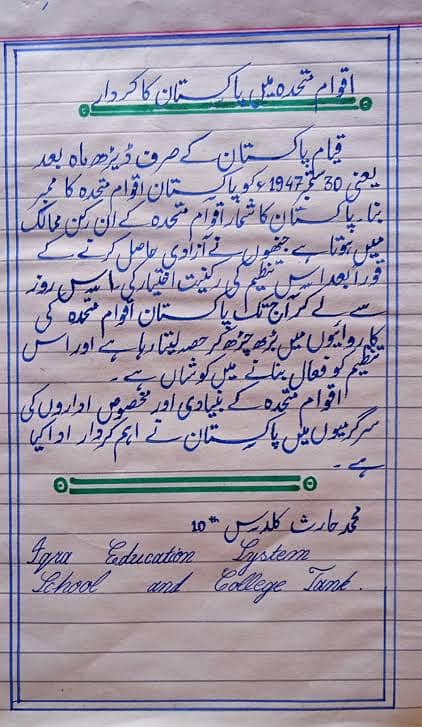 اقوام متحدہ میں پاکستان کا کردار
قیام پاکستان کے صرف ڈیڑھ ماہ بعد
یعنی 30 ستمبر 1947ء کو پاکستان اقوام متحدہ کا ممبر
بنا۔ پاکستان کا شمار اقوام متحدہ کے ان رکن ممالک
میں ہوتا ہے جنھوں نے آزادی حاصل کرنے کے
فوراً بعد اس تنظیم کی رکنیت اختیار کی۔ اس روز
سے لے کر آج تک پاکستان اقوام متحدہ کی
کاروائیوں میں بڑھ چڑھ کر حصہ لیتا رہا ہے اور اس
تنظیم کو فعال بنانے میں کوشاں ہے۔
اقوام متحدہ کے بنیادی اور مخصوص اداروں کی
سرگرمیوں میں پاکستان نے اہم کردار ادا کیا
ہے۔
محمد حارث کلاس 10th
Iqra Education System
School and College Tank.